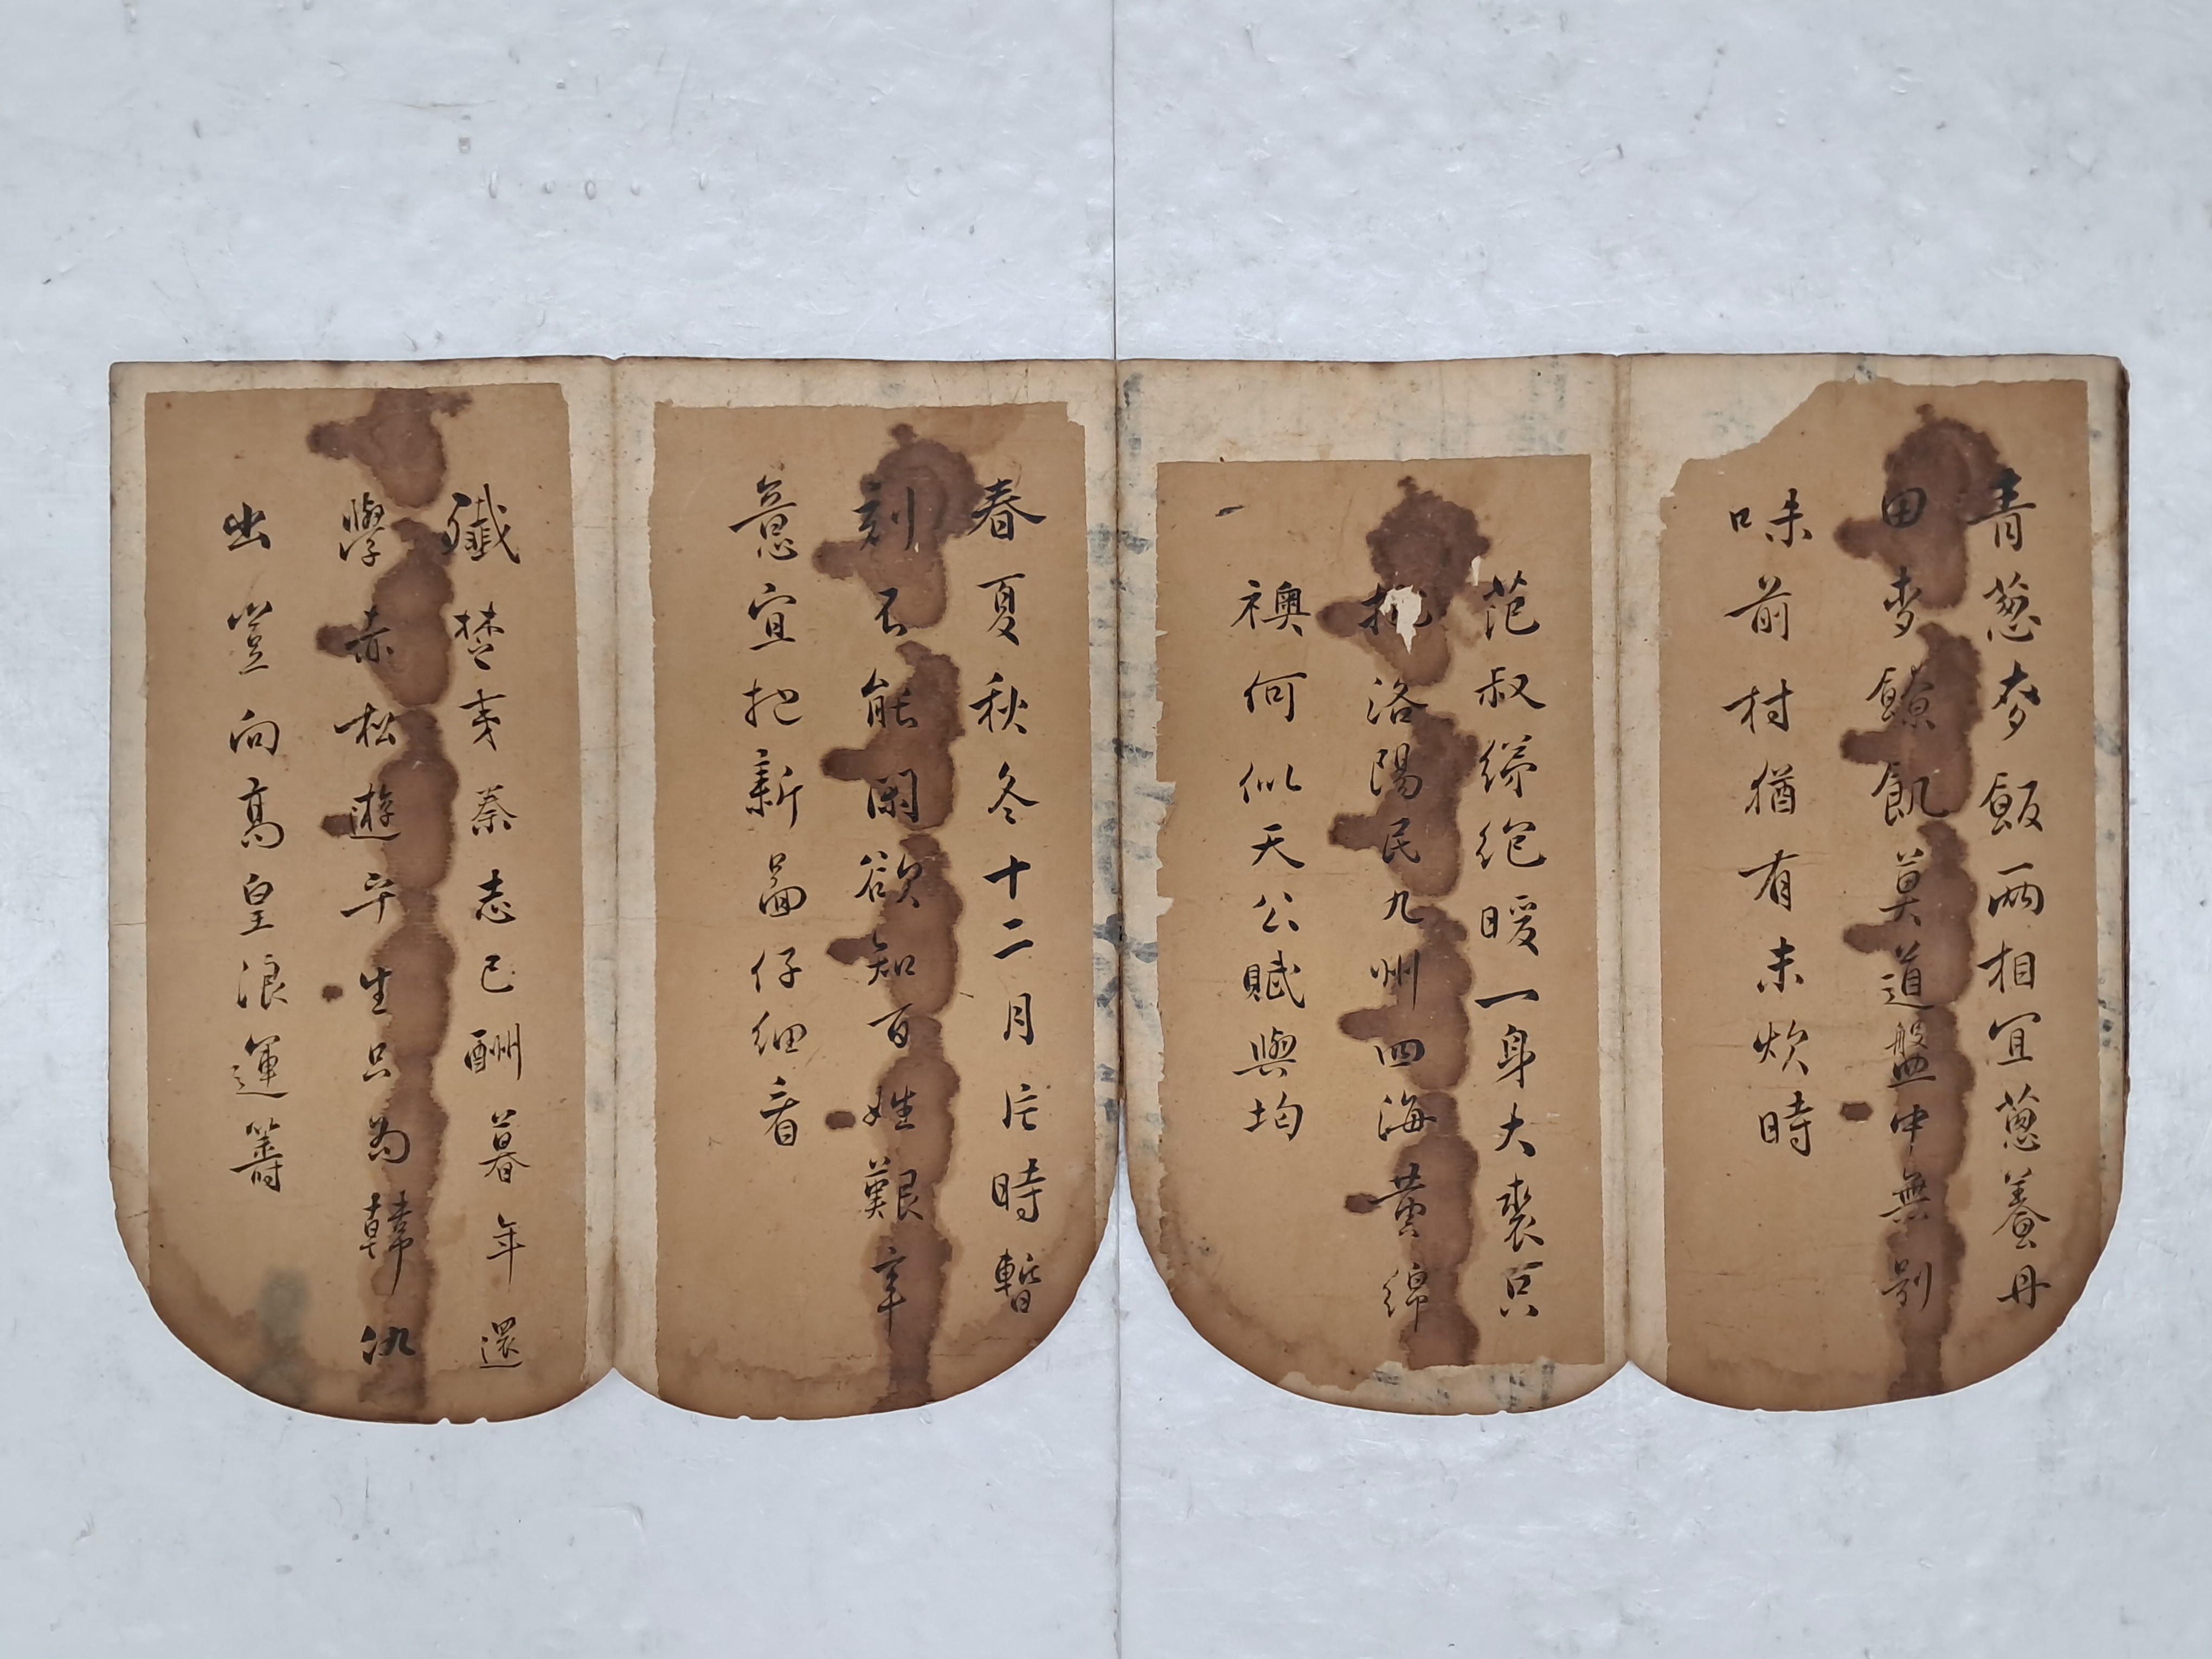 青葱麥飯兩相宜葱養丹
田麥餘飢莫道盤中無別
味前村猶有未炊時
范叔綈袍暖一身大裘只
挽洛陽民九州四海黄綿
襖何似天公賦與均
春夏秋冬十二月片時暫
刻不能閑欲知百姓艱辛
意宜把新啚仔細看
殲楚夷秦志已酬暮年還
學赤松遊平生只為韓仇
出豈向高皇浪運籌